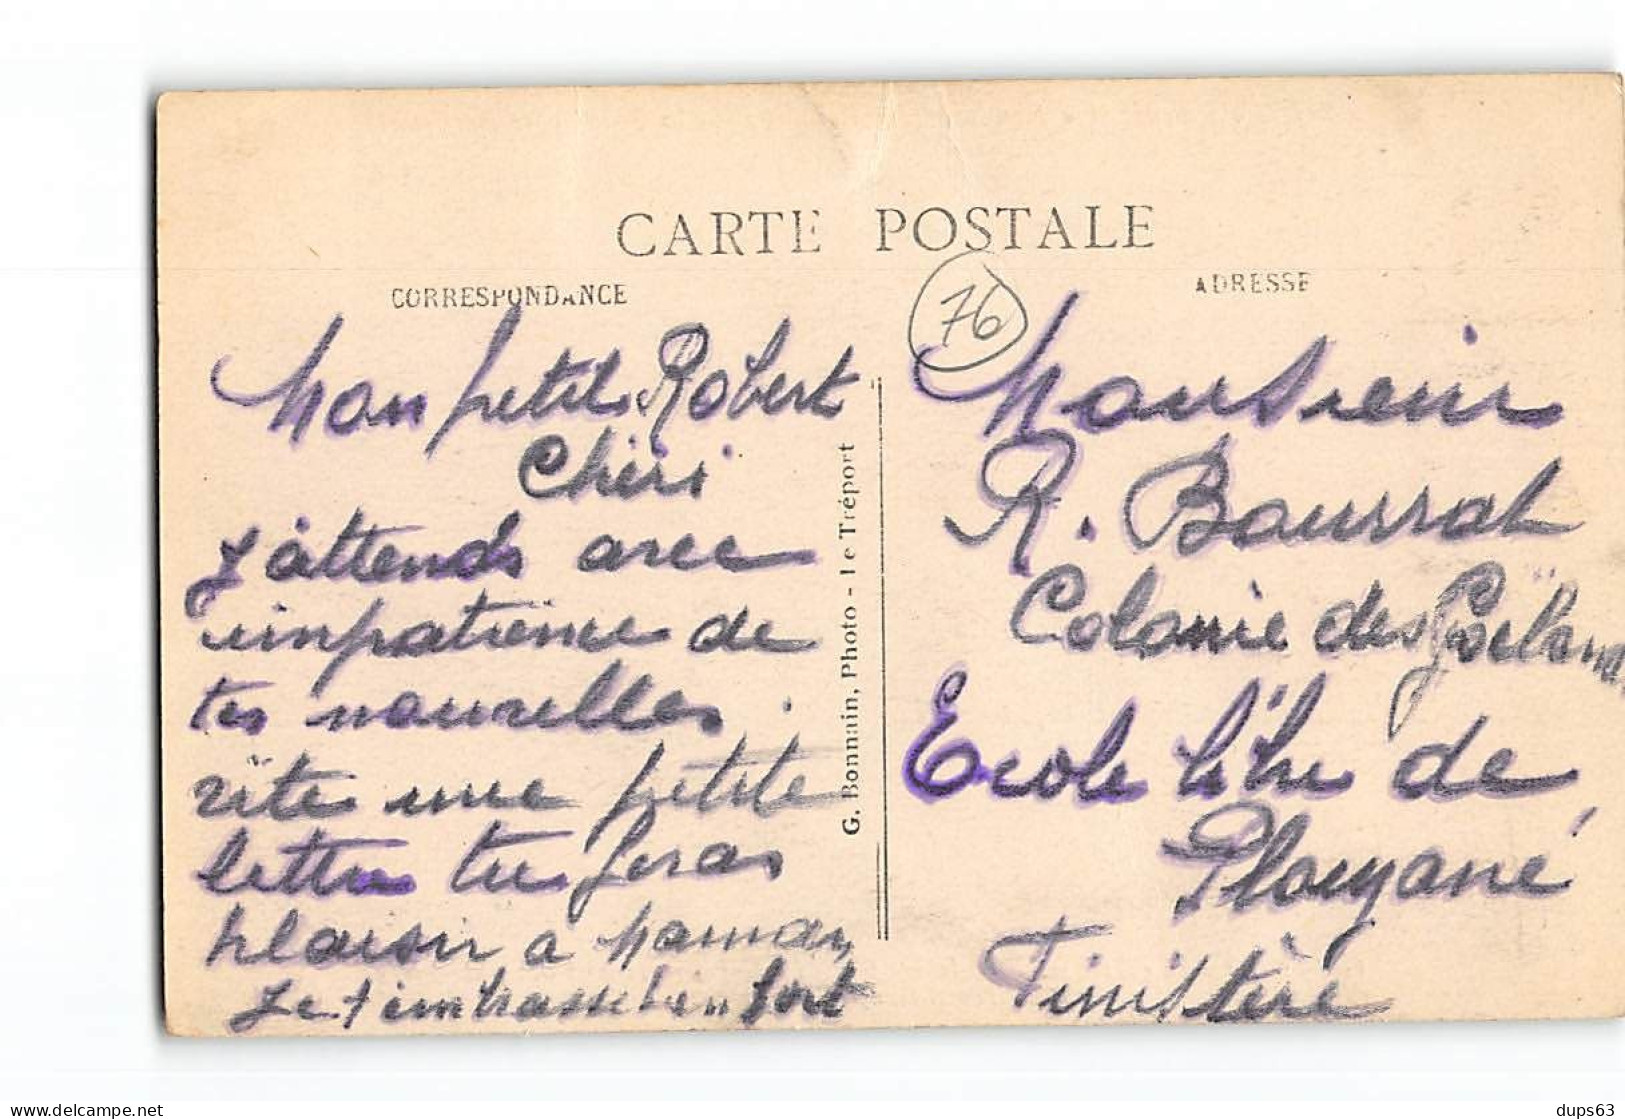 CARTE POSTALE
CORRESPONDANCE
ADRESSE
76
Mon petit Robert
Chéri
J'attends avec
impatience de
tes nouvelles.
vite une petite
lettre tu feras
plaisir à Maman
Je t'embrasse bien fort
G. Bonnain, Photo - Le Tréport
Monsieur
R. Boussat
Colonie des Goëlans
Ecole libre de
Plouyané
Finistère
delcampe.net
dups63